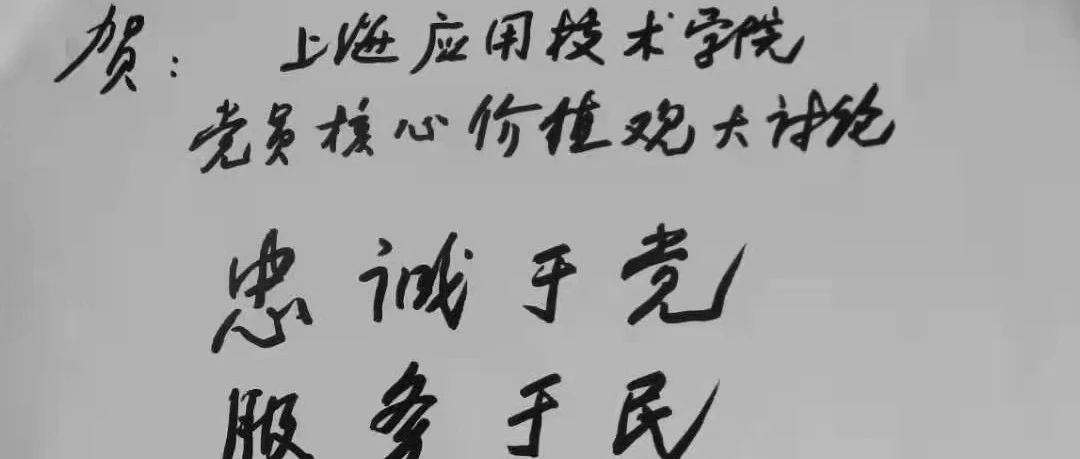 贺：上海应用技术学院
党员核心价值观大讨论
忠诚于党
服务于民